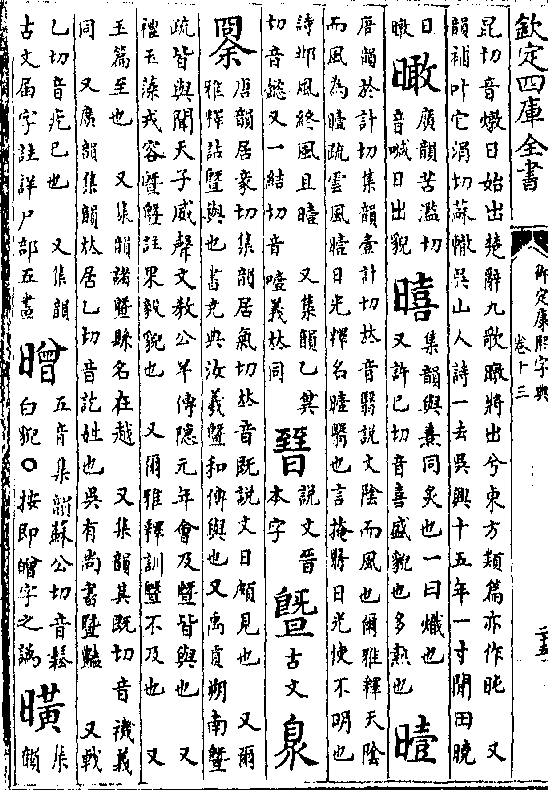 欽定四庫全書
御定康熙字典
卷十三
昆切音燉日始出楚辭九歌暾將出兮東方類篇亦作旽　又
韻補叶它涓切蘇轍吳山人詩一去吳興十五年一寸閒田曉
日
暾
暾 廣韻苦濫切
音㘎日出貌
暿 集韻與熹同炙也一曰熾也
又許已切音喜盛貌也多熱也
曀
唐韻於計切集韻壹計切𠀤音翳說文陰而風也爾雅釋天陰
而風為曀疏雲風曀日光釋名曀翳也言掩翳日光使不明也
詩邶風終風且曀　又集韻乙冀
切音懿又一結切音噎義𠀤同
說文晉
本字
曁 古文
唐韻居豙切集韻居氣切𠀤音既說文日頗見也　又爾
雅釋詁曁與也書堯典汝羲曁和傳與也又禹貢朔南曁
疏皆與聞天子威聲文教公羊傳隱元年會及曁皆與也　又
禮玉藻戎容曁曁註果毅貌也　又爾雅釋訓曁不及也　又
玉篇至也　又集韻諸曁縣名在越　又集韻其既切音禨義
同　又廣韻集韻𠀤居乙切音訖姓也吳有尚書曁豔　又戟
乙切音疙已也　又集韻
古文届字註詳尸部五畫
五音集韻蘇公切音鬆
白貌○按即字之譌
曂 集
韻